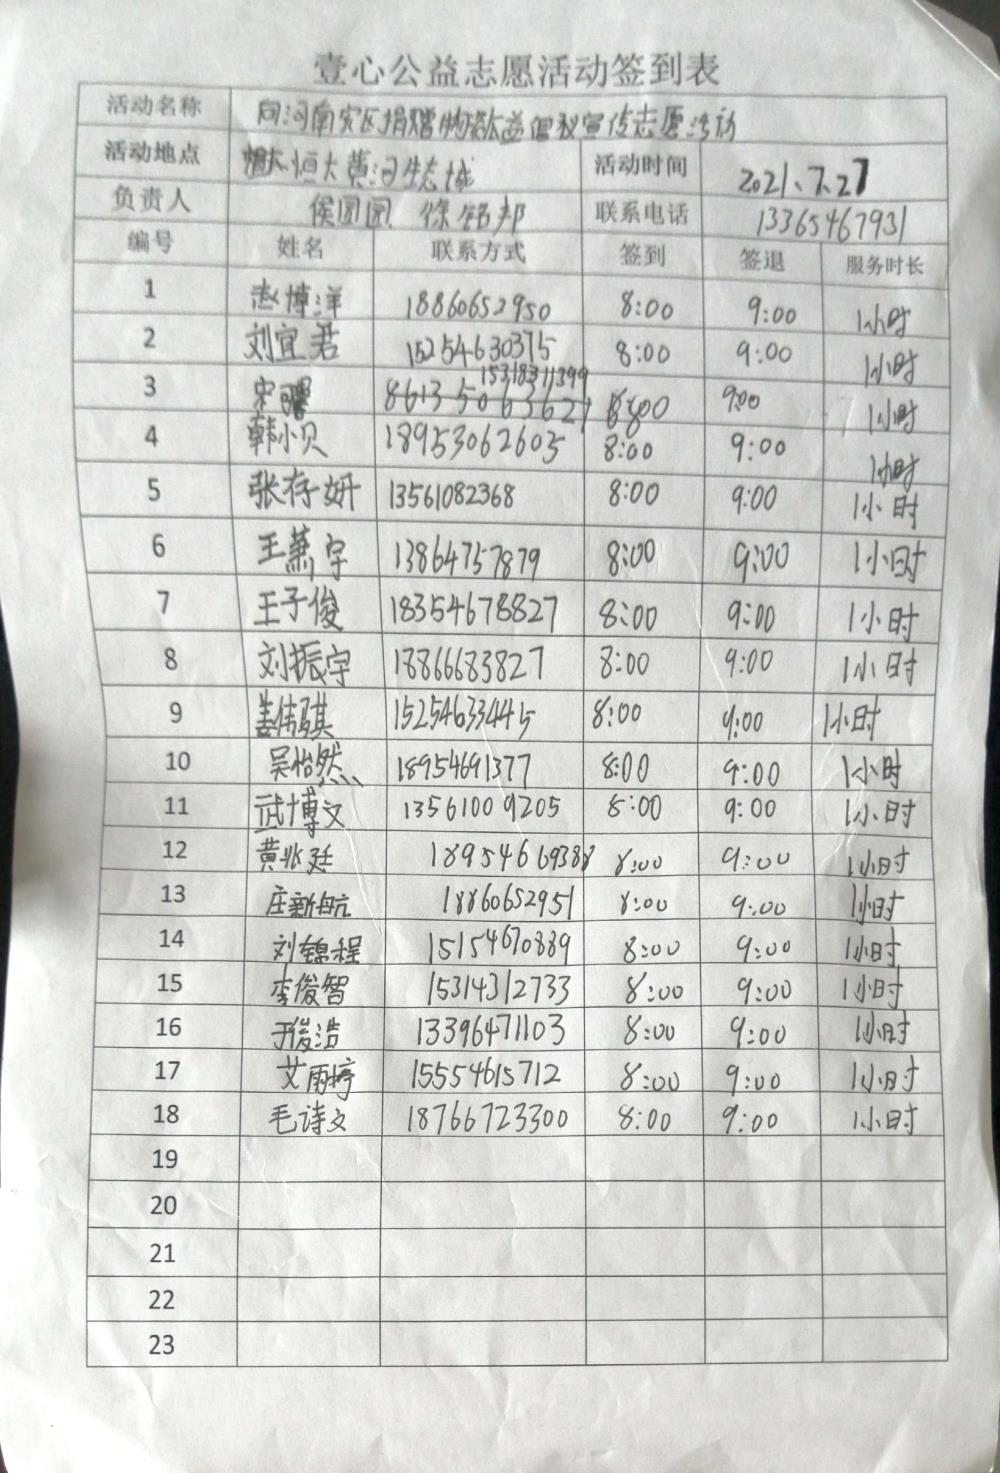 壹心公益志愿活动签到表
活动名称 向河南灾区捐赠物资公益倡议宣传志愿活动
活动地点 恒大黄河生态城 活动时间 2021.7.27
负责人 侯园园 徐铭邦 联系电话 13365467931
编号 姓名 联系方式 签到 签退 服务时长
1 赵博洋 18860652950 8:00 9:00 1小时
2 刘宜君 15254630375 8:00 9:00 1小时
15318311399
3 宋曜 8613506362 8:00 9:00 1小时
4 韩小贝 18953062605 8:00 9:00 1小时
5 张存妍 13561082368 8:00 9:00 1小时
6 王萧宇 13864757879 8:00 9:00 1小时
7 王子俊 18354678827 8:00 9:00 1小时
8 刘振宇 18866683827 8:00 9:00 1小时
9 姜伟骐 15254633445 8:00 9:00 1小时
10 吴怡然 18954691377 8:00 9:00 1小时
11 武博文 13561009205 8:00 9:00 1小时
12 黄兆廷 18954669388 8:00 9:00 1小时
13 庄新航 18860652951 8:00 9:00 1小时
14 刘锦程 15154670889 8:00 9:00 1小时
15 李俊智 15314312733 8:00 9:00 1小时
16 于俊浩 13396471103 8:00 9:00 1小时
17 艾雨婷 15554615712 8:00 9:00 1小时
18 毛诗文 18766723300 8:00 9:00 1小时
19
20
21
22
23